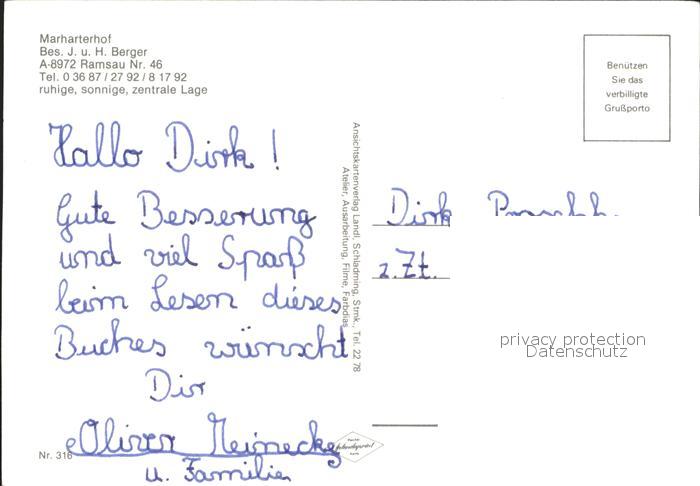 Marharterhof
Bes. J. u. H. Berger
A-8972 Ramsau Nr. 46
Tel. 0 36 87 / 27 92 / 8 17 92
ruhige, sonnige, zentrale Lage
Benützen
Sie das
verbilligte
Grußporto
Hallo Dirk !
Gute Besserung
und viel Spaß
beim Lesen dieses
Buches wünscht
Dir
Oliver Meinecke
u. Familie
Nr. 316
Ansichtskartenverlag Landl, Schladming, Stmk., Tel. 22 78
Atelier, Ausarbeitung, Filme, Farbdias
Dirk
z. Zt.
privacy protection
Datenschutz